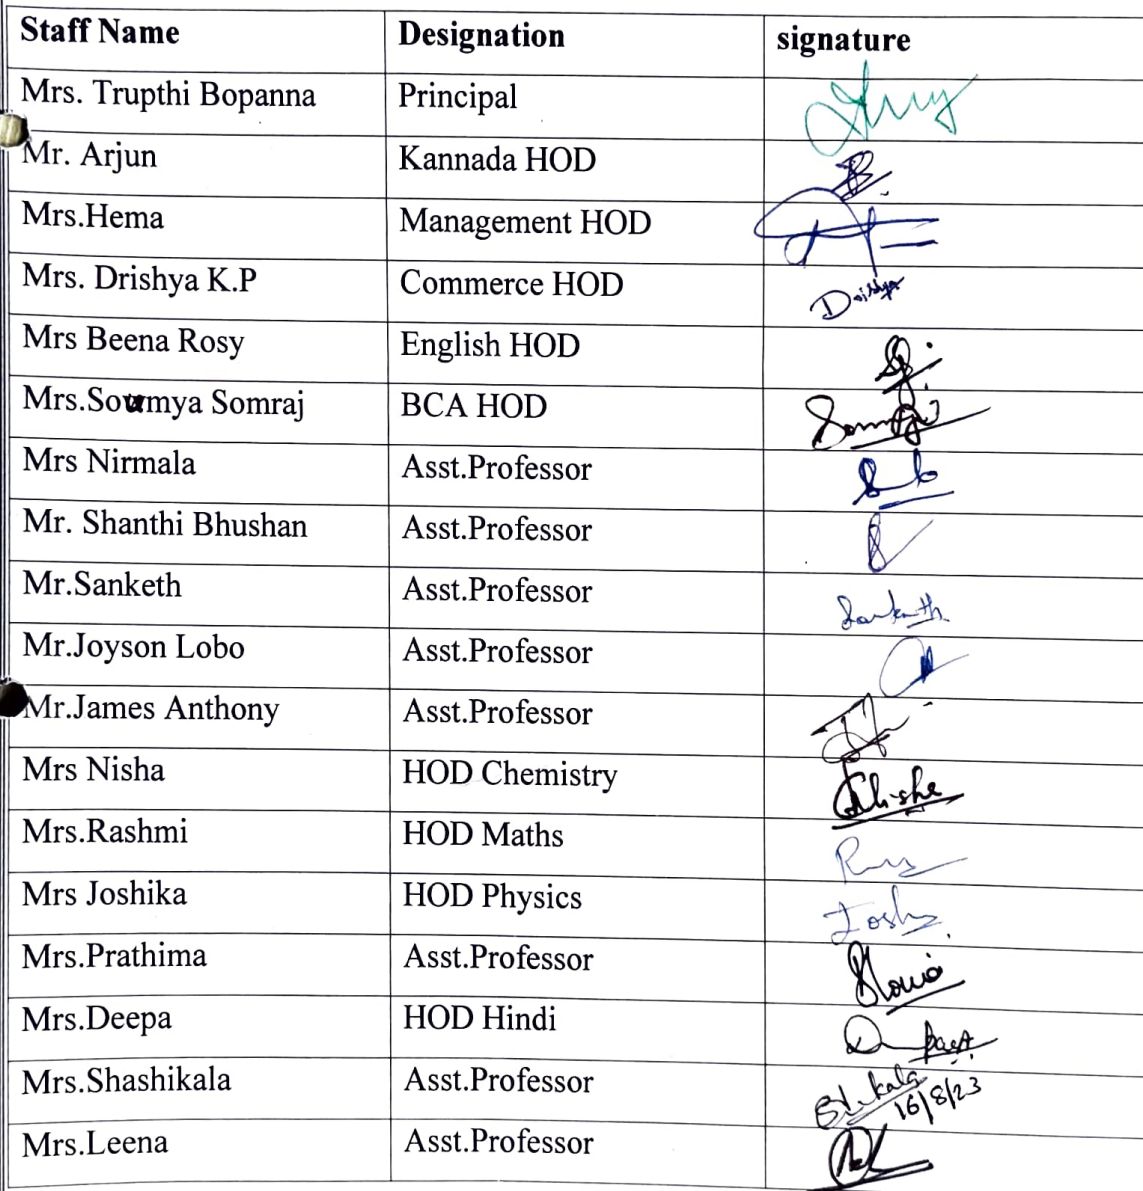 Staff Name Designation signature
Mrs. Trupthi Bopanna Principal
Mr. Arjun Kannada HOD
Mrs.Hema Management HOD
Mrs. Drishya K.P Commerce HOD Drishya
Mrs Beena Rosy English HOD
Mrs.Soumya Somraj BCA HOD
Mrs Nirmala Asst.Professor
Mr. Shanthi Bhushan Asst.Professor
Mr.Sanketh Asst.Professor Sanketh
Mr.Joyson Lobo Asst.Professor
Mr.James Anthony Asst.Professor
Mrs Nisha HOD Chemistry
Mrs.Rashmi HOD Maths
Mrs Joshika HOD Physics
Mrs.Prathima Asst.Professor
Mrs.Deepa HOD Hindi
Mrs.Shashikala Asst.Professor
16/8/23
Mrs.Leena Asst.Professor